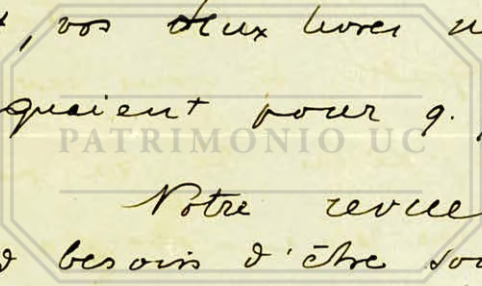 , vos deux livres
quaient pour q.
PATRIMONIO UC
Notre revue
besoin d'être sou